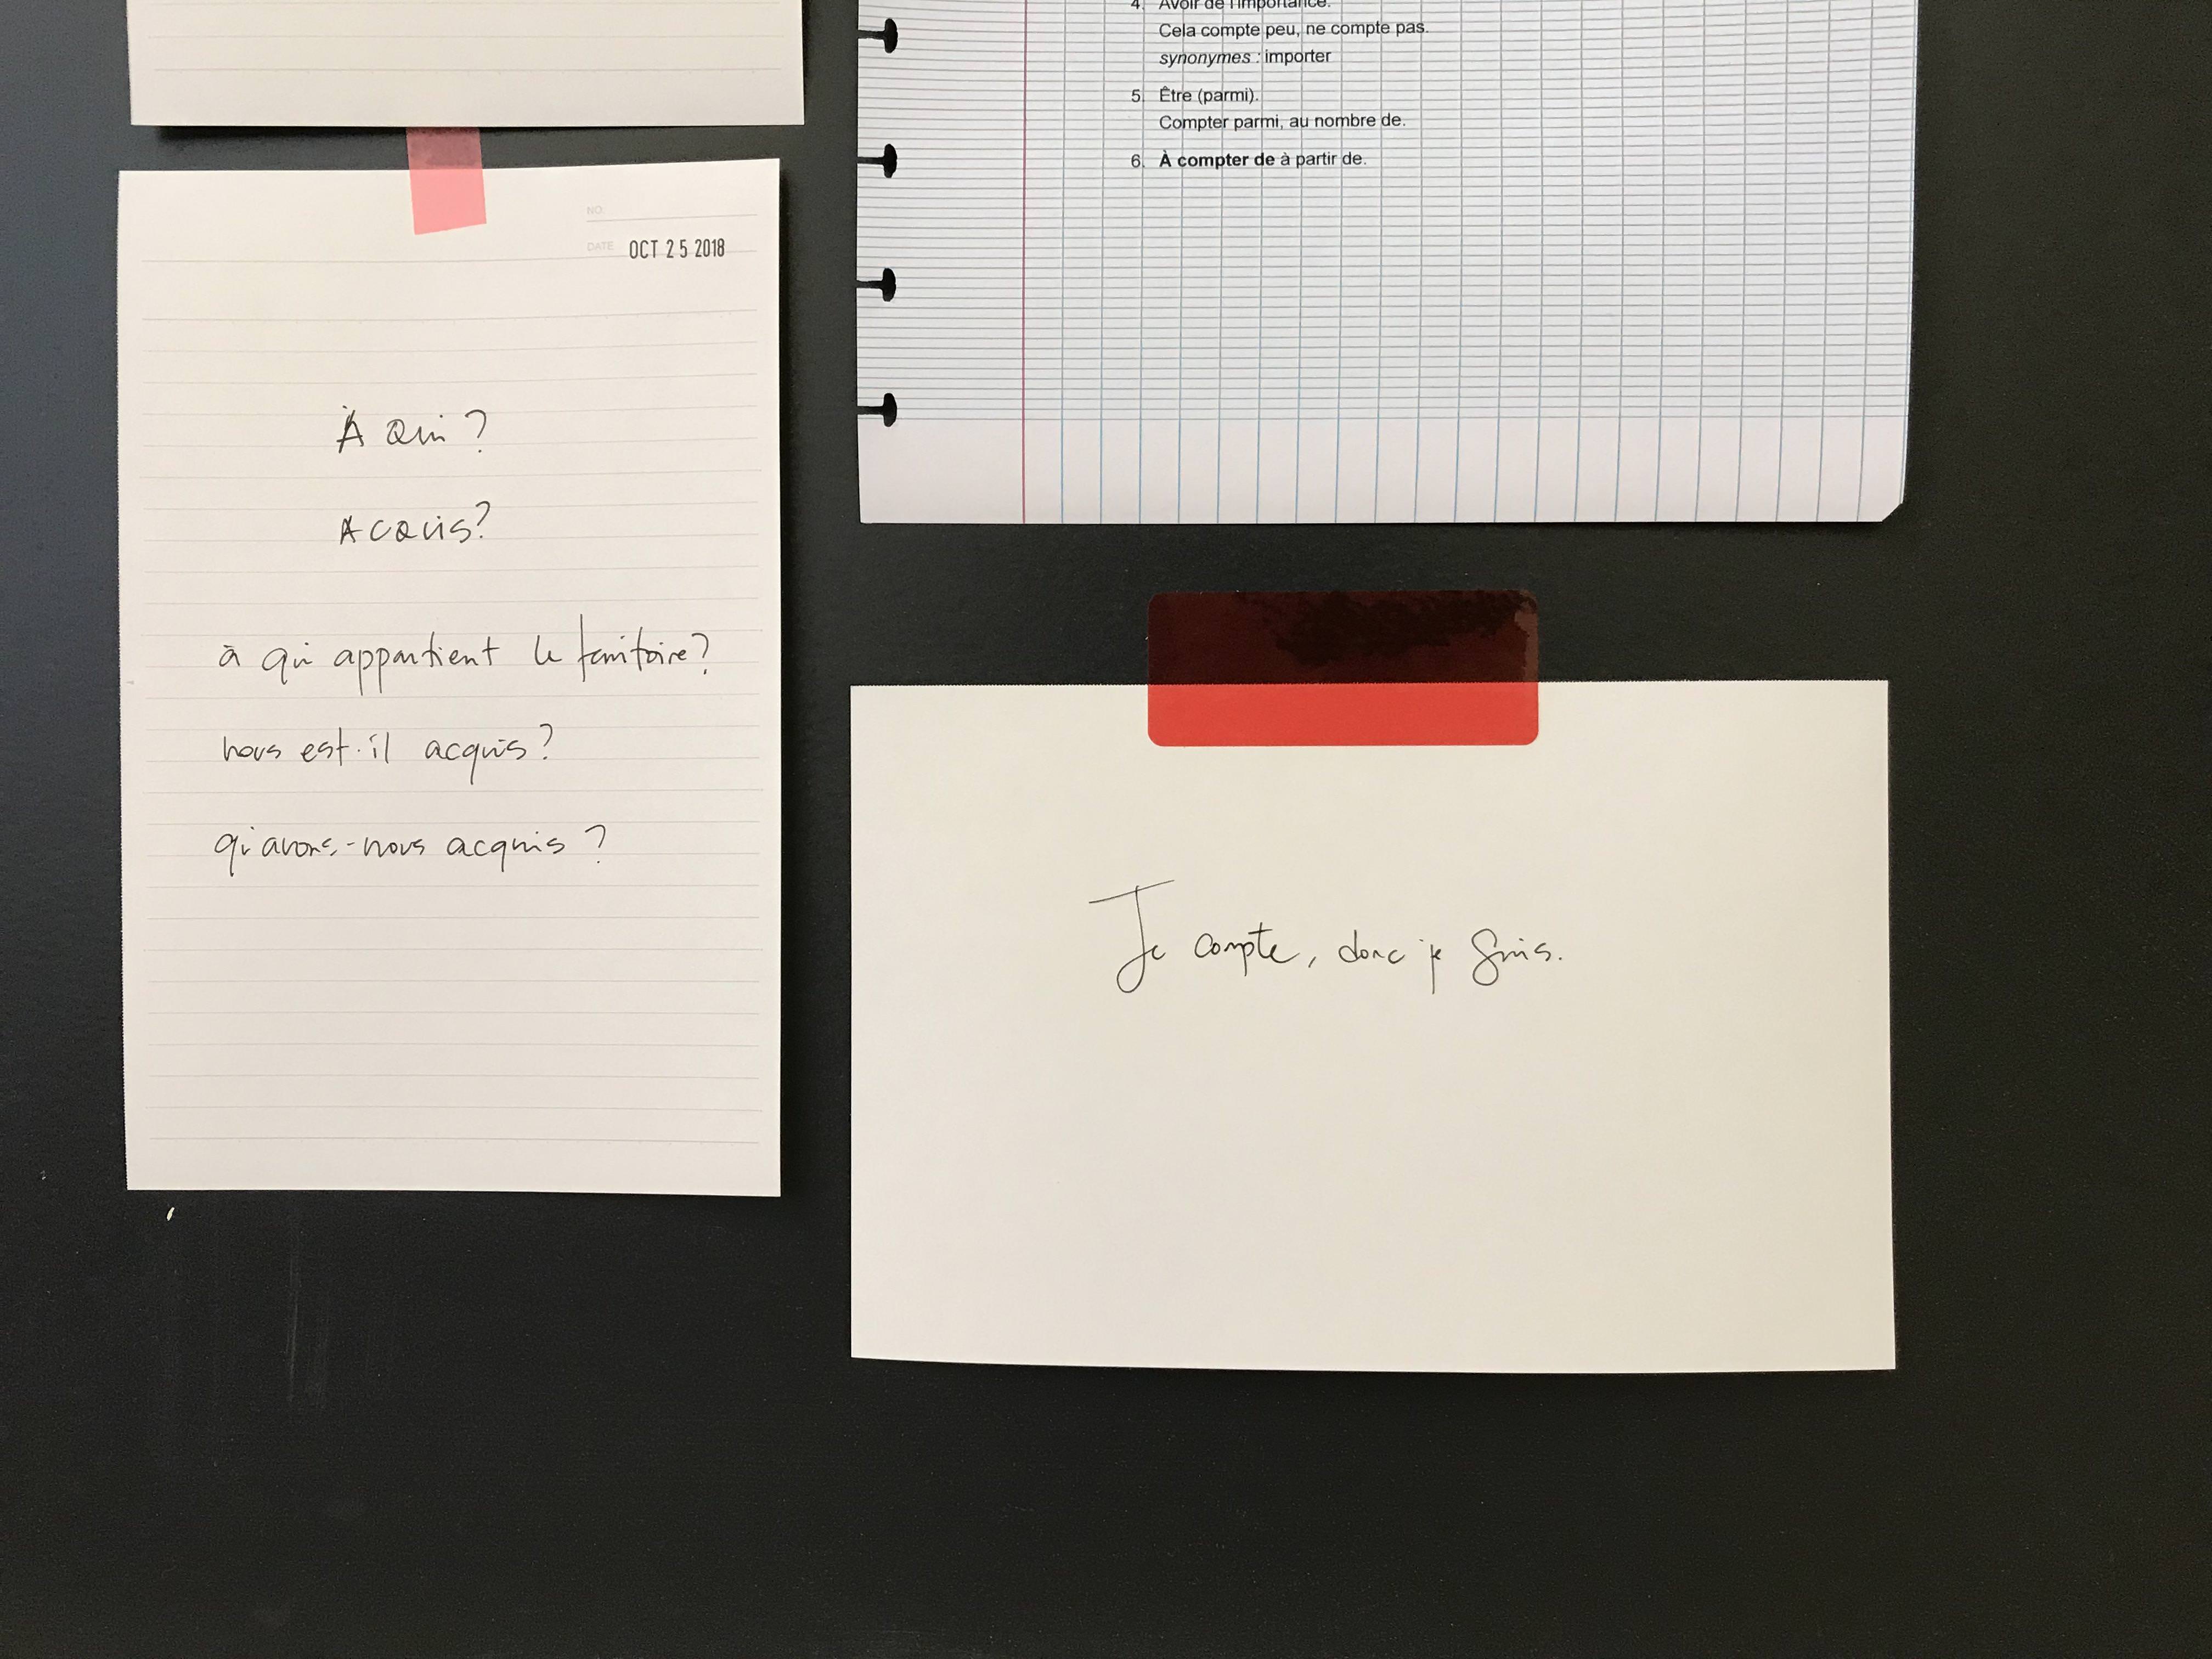 NO.
DATE OCT 25 2018
À Qui ?
Acquis?
à qui appartient le territoire?
nous est-il acquis?
qu'avons-nous acquis ?
4. Avoir de l'importance.
Cela compte peu, ne compte pas.
synonymes : importer
5. Être (parmi).
Compter parmi, au nombre de.
6. À compter de à partir de.
Je compte, donc je suis.